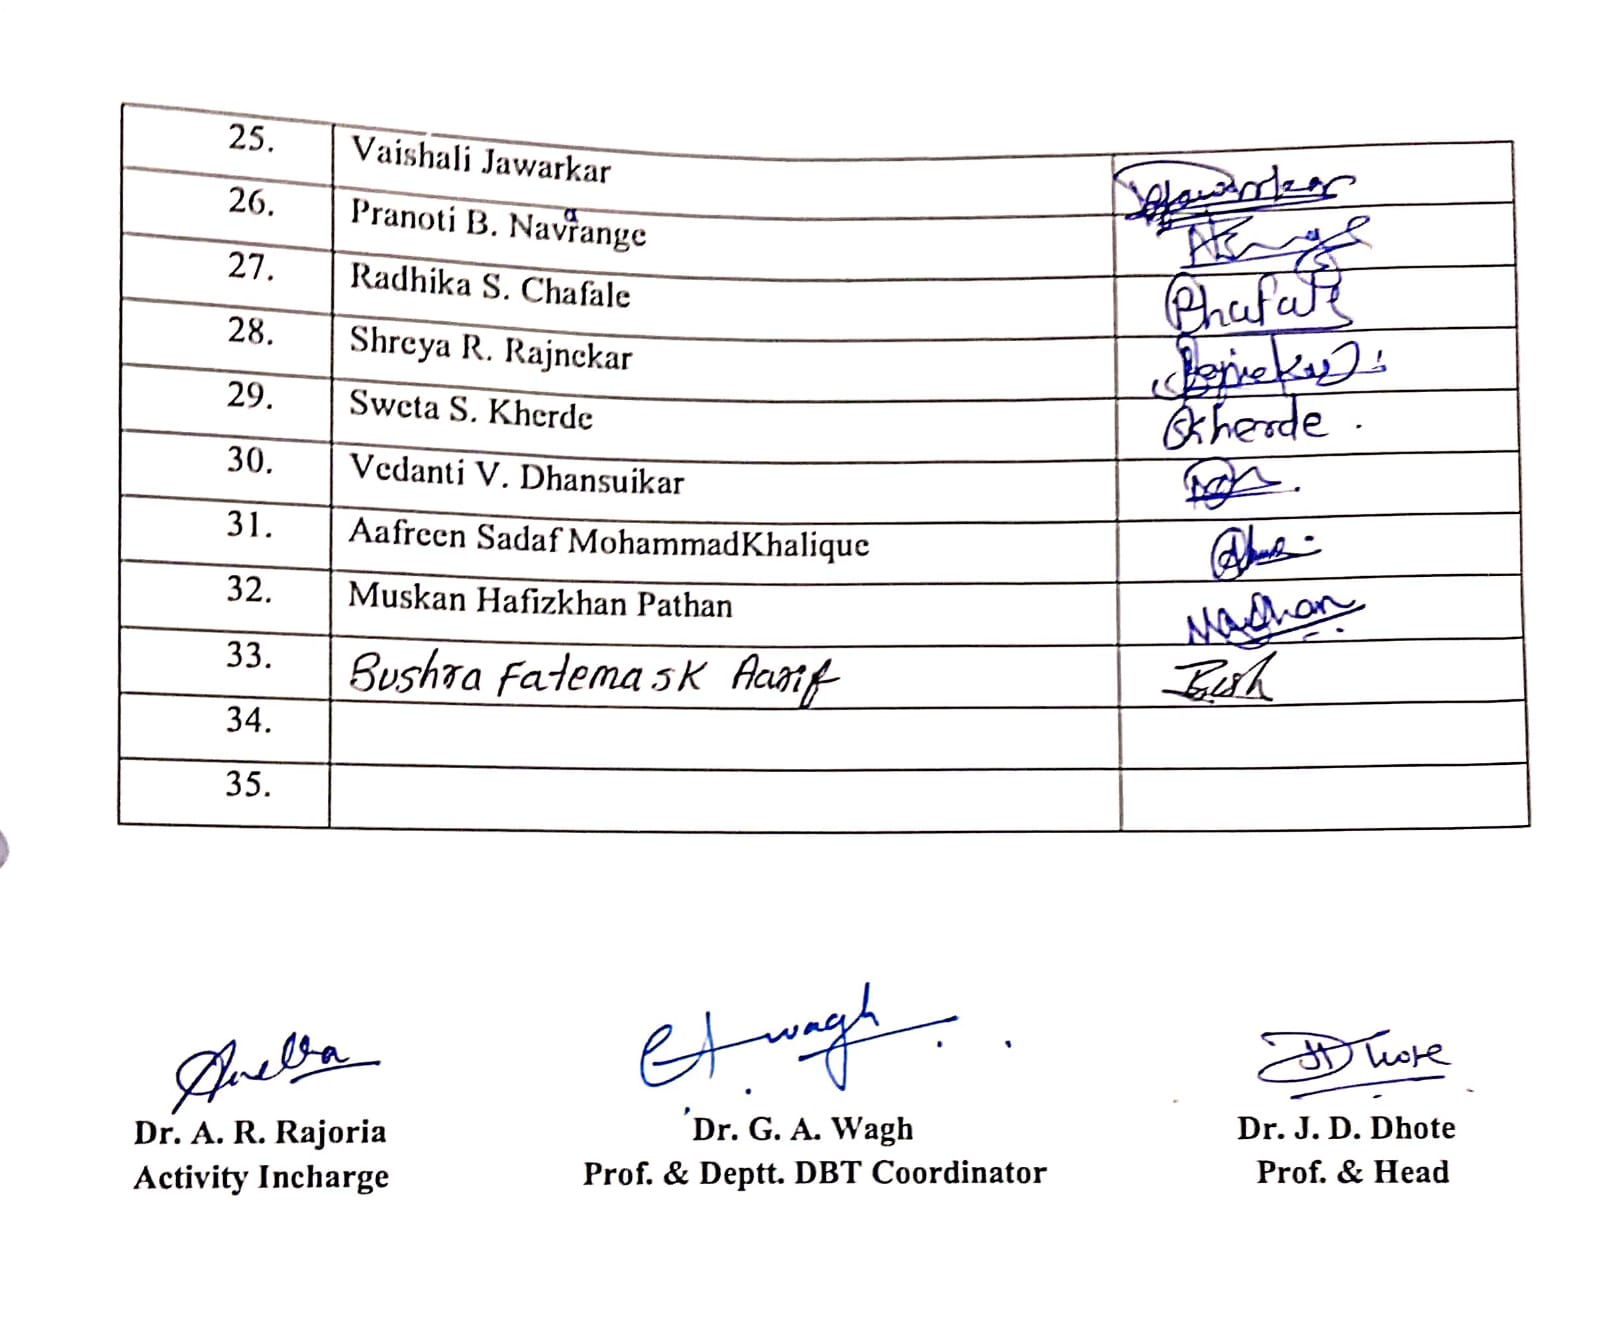 25. Vaishali Jawarkar Jawarkar
26. Pranoti B. Navrange a
27. Radhika S. Chafale Chafale
28. Shreya R. Rajnekar
29. Sweta S. Kherde Skherde.
30. Vedanti V. Dhansuikar
31. Aafreen Sadaf MohammadKhalique
32. Muskan Hafizkhan Pathan
33. Bushra Fatema sk Aarif Bush
34.
35.
GAwagh
JDDhote
Dr. A. R. Rajoria Dr. G. A. Wagh Dr. J. D. Dhote
Activity Incharge Prof. & Deptt. DBT Coordinator Prof. & Head